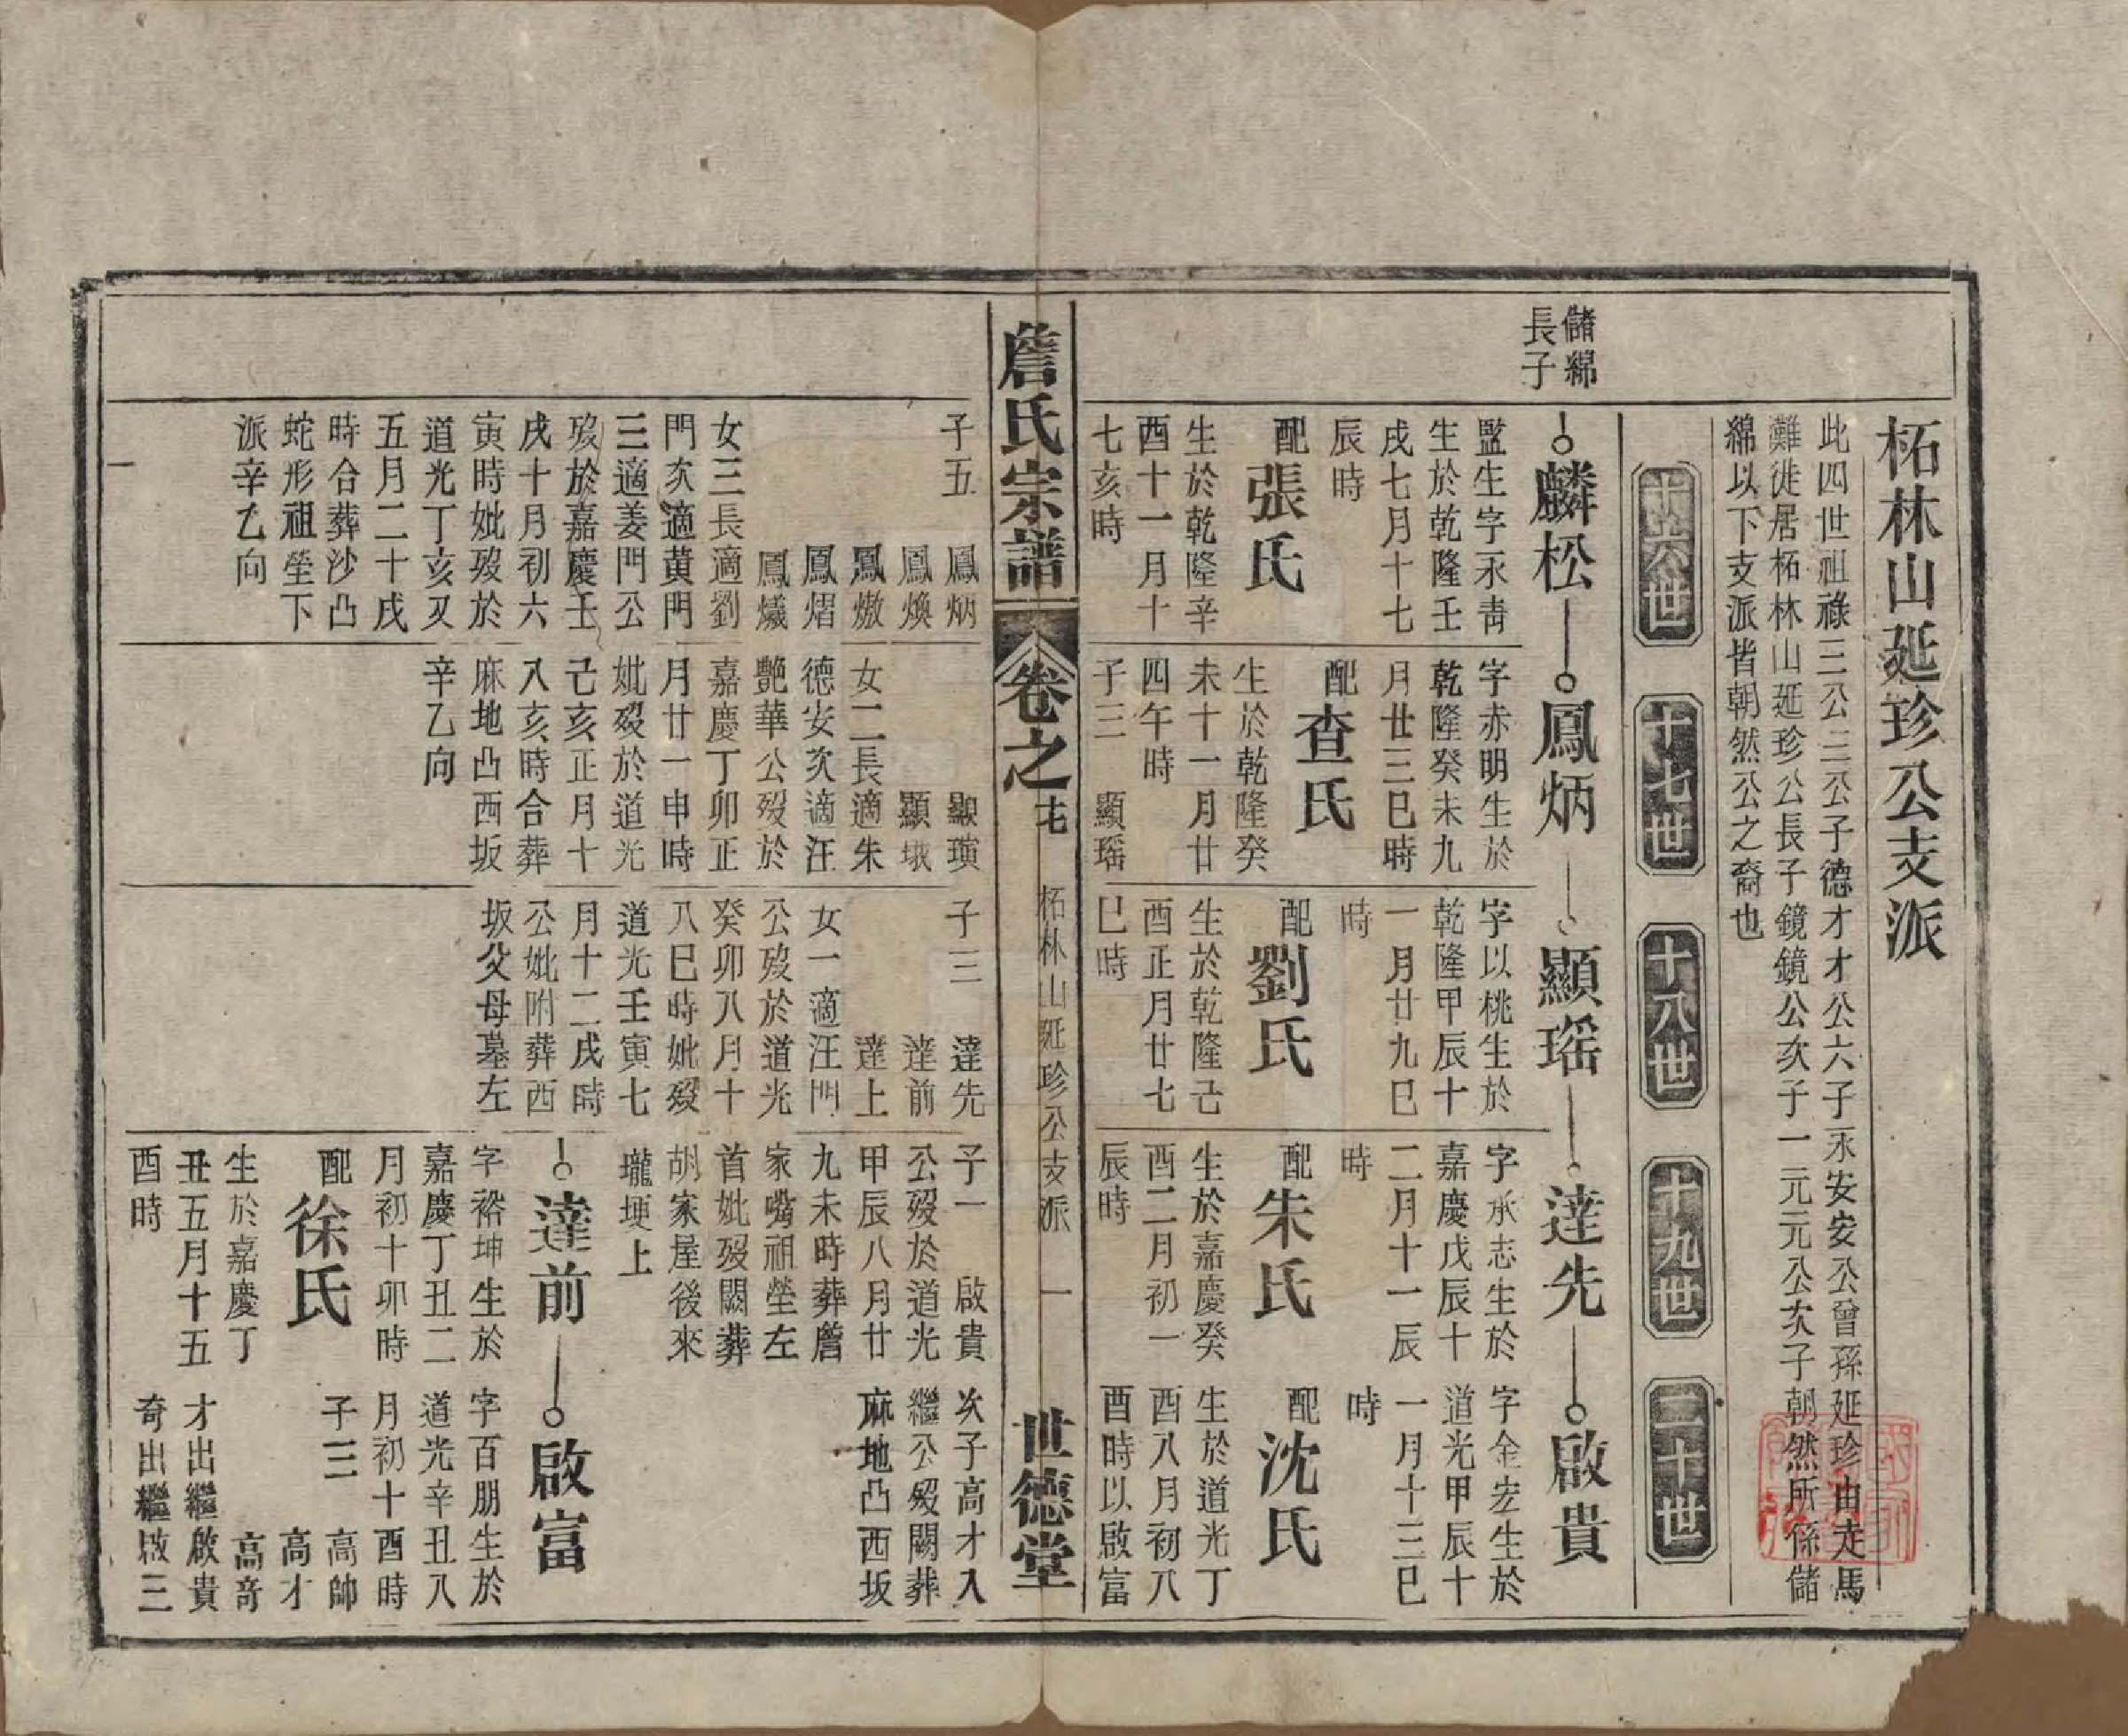 柘林山延珍公支派
此四世祖祿三公三公子德才才公六子永安安公曾孫延珍由走馬
灘徙居柘林山延珍公長子鏡鏡公次子一元元公次子朝然所係儲
綿以下支派皆朝然公之裔也
十六世
十七世
十八世
十九世
二十世
儲綿
長子
麟松
監生字永靑
生於乾隆壬
戌七月十七
辰時
配張氏
生於乾隆辛
酉十一月十
七亥時
子五
鳳炳
鳳煥
鳳熾
鳳熠
鳳爔
女三長適劉
門次適黃門
三適姜門公
歿於嘉慶壬
戌十月初六
寅時妣歿於
道光丁亥又
五月二十戌
時合葬沙凸
蛇形祖塋下
派辛乙向
鳳炳
字赤明生於
乾隆癸未九
月廿三巳時
配查氏
生於乾隆癸
未十一月廿
四午時
子三
顯瑤
顯璜
顯珴
女二長適朱
德安次適汪
艷華公歿於
嘉慶丁卯正
月廿一申時
妣歿於道光
己亥正月十
八亥時合葬
麻地凸西坂
辛乙向
顯瑤
字以桃生於
乾隆甲辰十
一月廿九巳
時
配劉氏
生於乾隆己
酉正月廿七
巳時
子三
達先
達前
達上
女一適汪門
公歿於道光
癸卯八月十
八巳時妣歿
道光壬寅七
月十二戌時
公妣附葬西
坂父母墓左
達先
字承志生於
嘉慶戊辰十
二月十一辰
時
配朱氏
生於嘉慶癸
酉二月初一
辰時
子一
啟貴
公歿於道光
甲辰八月廿
九未時葬詹
家嘴祖塋左
首妣歿闕葬
胡家屋後來
壠埂上
啟貴
字金宏生於
道光甲辰十
一月十三巳
時
配沈氏
生於道光丁
酉八月初八
酉時以啟富
次子高才入
繼公歿闕葬
麻地凸西坂
達前
字裕坤生於
嘉慶丁丑二
月初十卯時
配徐氏
生於嘉慶丁
丑五月十五
酉時
啟富
字百朋生於
道光辛丑八
月初十酉時
子三
高帥
高才
高奇
才出繼啟貴
奇出繼啟三
詹氏宗譜
卷之
柘林山延珍公支派
一
世德堂